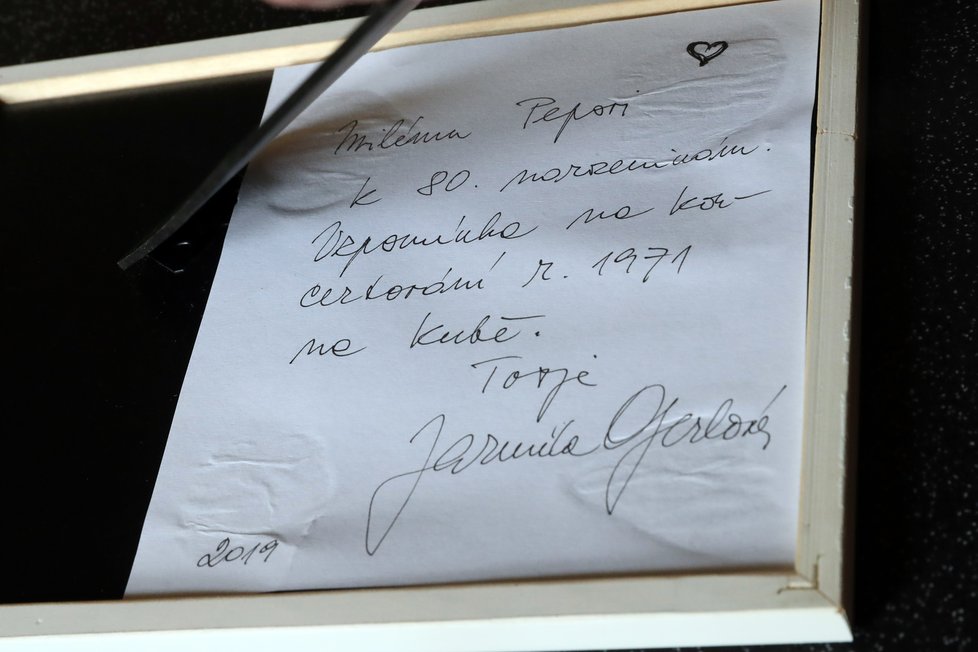 Milému Pepovi
k 80. narozeninám.
Vzpomínka na kon-
certování r. 1971
na Kubě.
Tvoje
Jarmila Gerlová
2019